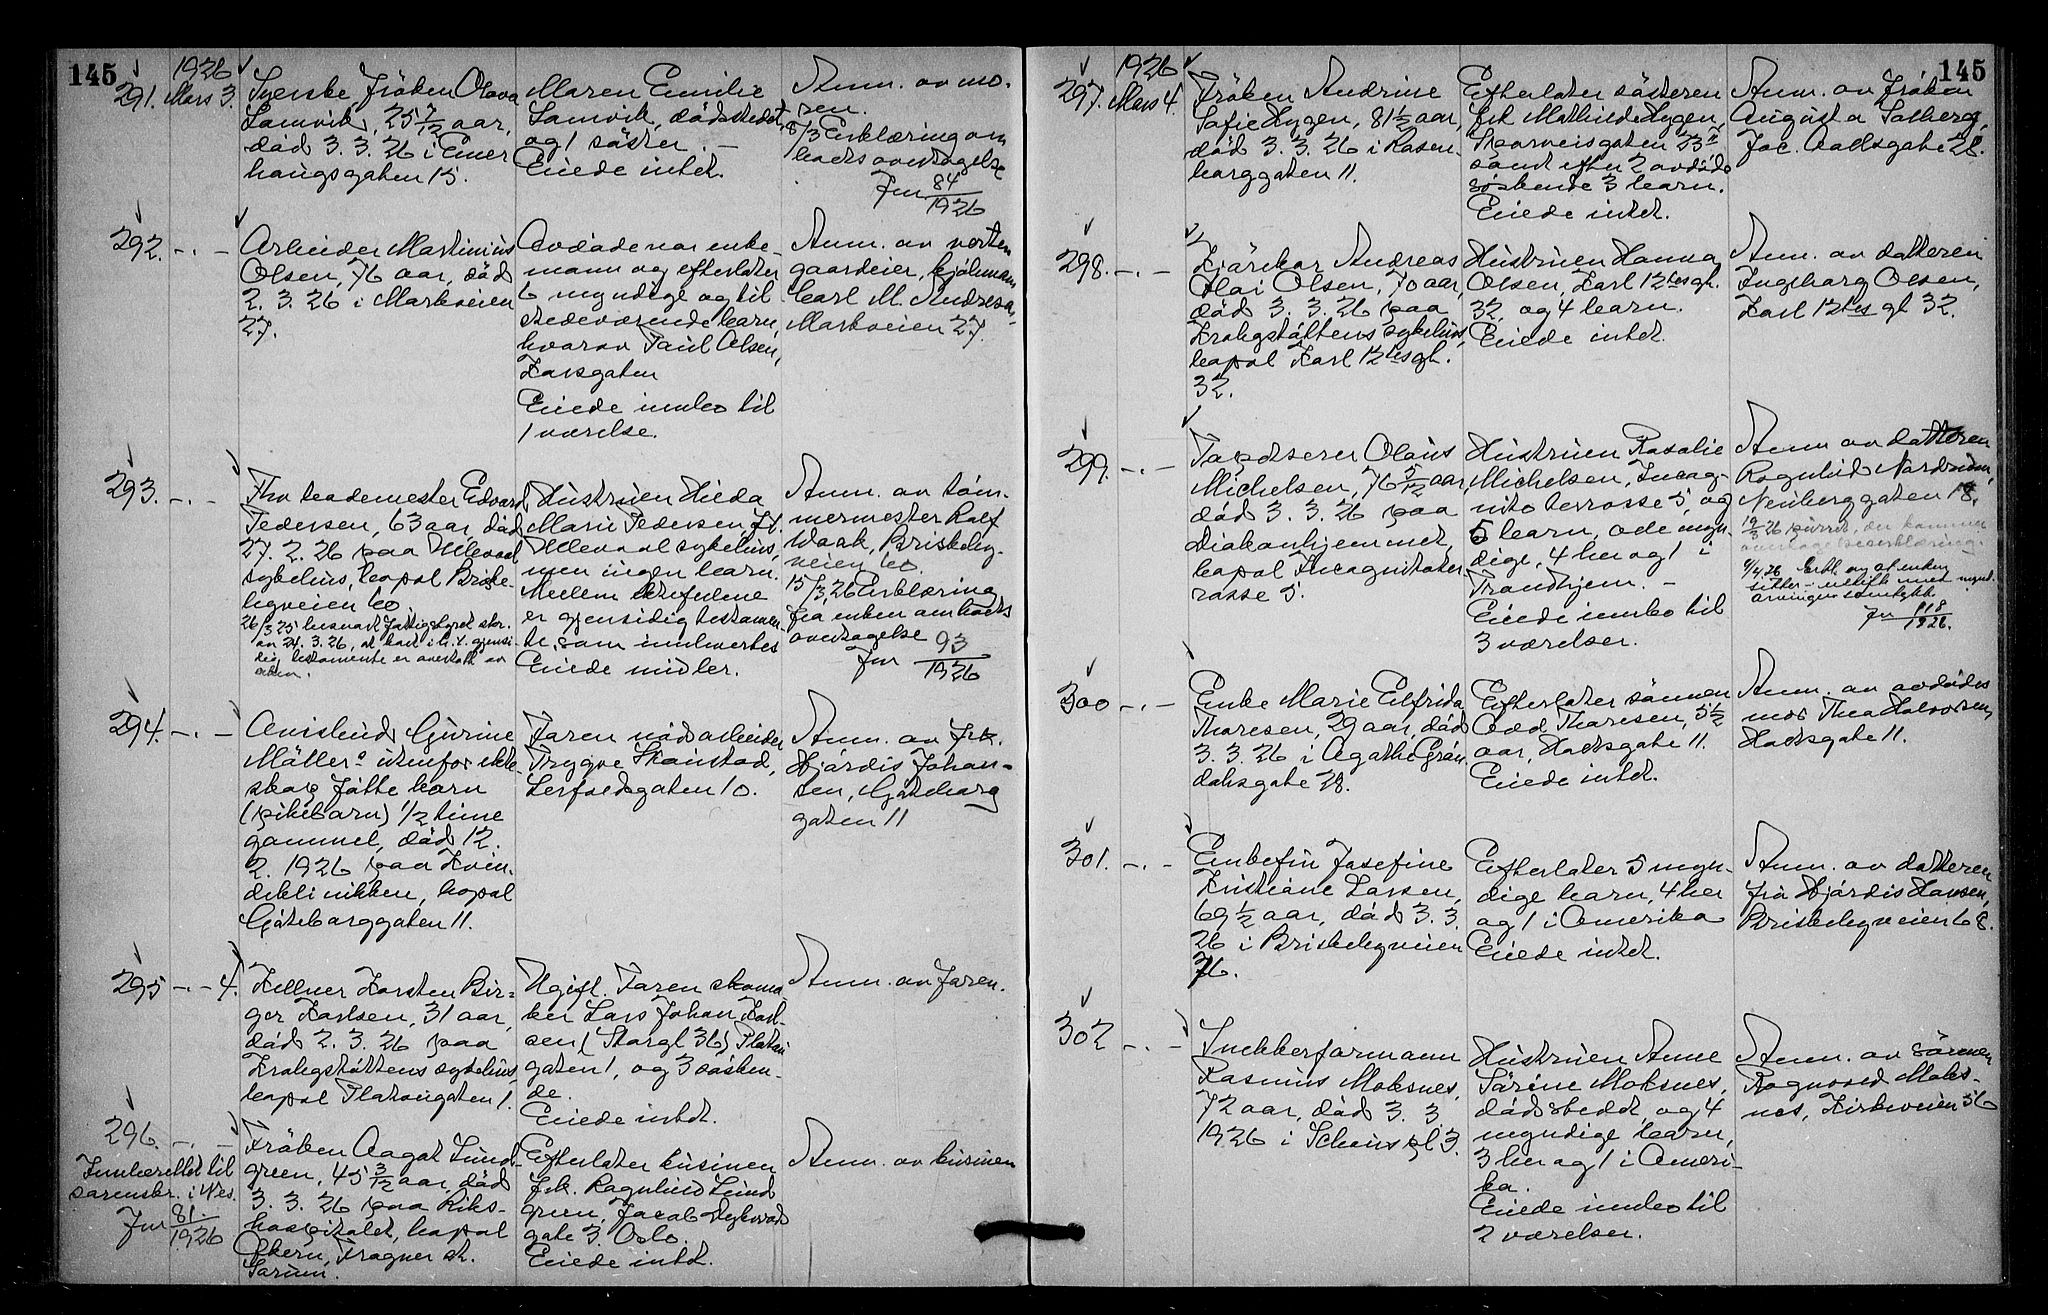 145
1926
291. Mars 3. Syerske Frøken Olava
Samvik, 25 7/12 aar,
død 3. 3. 26 i Ener
haugsgaten 15.
Maren Emilie
Samvik, dødsstedet,
og 1 søster. —
Eiede intet.
Anm. av mo-
ren.
8/3 Erklæring om
boets overtagelse
Jnr 84/1926
292. -.- Arbeider Martinius
Olsen, 76 aar, død
2. 3. 26 i Markveien
27.
Avdøde var enke-
mann og efterlater
6 myndige og til
stedeværende barn,
hvorav Paul Olsen,
Larsgaten
Eiede innbo til
1 værelse.
Anm. av verten
gaardeier, kjøbmann
Carl M. Andresen,
Markveien 27.
293. -.- Fhv. bademester Edvard
Pedersen, 63 aar, død
27. 2. 26 paa Ullevaal
sykehus, bopal Briske-
byveien 60
Hustruen Hilda
Marie Pedersen, f.t.
Ullevaal sykehus,
men ingen barn.
Mellem ektefellene
er gjensidig testamen-
te, som innleveres
Eiede midler.
Anm. av tøm-
mermester Rolf
Waak, Briskeby-
veien 60.
15/3 26 Erklæring
fra enken om boets
overtagelse
Jnr 93/1926
294. -.- Anislind Gurine
Møller's utenfor ekte-
skap fødte barn
(pikebarn) 1/2 time
gammel, død 12.
2. 1926 paa Kvin-
deklinikken, bopal
Gøteborggaten 11.
Faren nødsarbeider
Trygve Skaustad,
Leirfossgaten 10.
Anm. av frk.
Hjørdis Johan-
sen, Gøteborg
gaten 11
295 -.- 4. Kellner Karsten Bir-
ger Karlsen, 31 aar,
død 2. 3. 26 paa
Krohgstøttens sykehus,
bopal Platougaten 1.
Ugift. Faren skoma
ker Lars Johan Karl-
sen (Storgt 36) Platou
gaten 1, og 3 søsken-
de.
Eiede intet.
Anm. av faren.
296. -.- Frøken Aagot Lund-
green, 45 3/12 aar, død
3. 3. 26 paa Riks-
hospitalet, bopal
Økern, Frogner st.
Sørum.
Innberettet til
sorenskr. i Nes.
Jnr 81./1926
Efterlater kusinen
frk. Ragnhild Lund
green, Jacob Dybwads
gate 3. Oslo.
Eiede intet.
Anm. av kusinen
145
1926
297. Mars 4. Frøken Andrine
Sofie Hygen, 81 1/2 aar,
død 3. 3. 26 i Rosen-
borggaten 11.
Efterlater søsteren
frk Mathilde Hygen,
Sporveisgaten 23
samt efter 2 avdøde
søskende 3 barn.
Eiede intet.
Anm. av frøken
Augusta Solberg,
Jac. Aallsgate 28.
298. -.- Kjørekar Andreas
Olai Olsen, 70 aar,
død 3. 3. 26 paa
Krohgstøttens sykehus,
bopal Karl 12tes gt.
32.
Hustruen Hanna
Olsen, Karl 12tes gt.
32, og 4 barn.
Eiede intet.
Anm. av datteren
Ingeborg Olsen,
Karl 12tes gt 32.
299. -.- Tapetserer Olaus
Michelsen, 76 5/12 aar,
død 3. 3. 26 paa
Diakonhjemmet,
bopal Incognitoter-
rasse 5.
Hustruen Rosalie
Michelsen, Incog-
nito terrasse 5, og
5 barn, alle myn-
dige, 4 her og 1 i
Trondhjem. —
Eiede innbo til
3 værelser.
Anm av datteren
Ragnhild Nordbraaten,
Neubberggaten 18.
19/3 26 purret, der kommer
9/4 26 Erkl. og at enken
sitter i uskifte med mynd.
arvingers samtykke
Jnr 118/1926.
300 -.- Enke Marie Elfrida
Thoresen, 29 aar, død
3. 3. 26 i Agathe Grøn-
dahlsgate 28.
Efterlater sønnen
Odd Thoresen, 5 1/2
aar, Hoelsgate 11.
Eiede intet.
Anm. av avdødes
mor Thea Halvorsen,
Hoelsgate 11.
301. -.- Enkefru Josefine
Kristiane Larsen,
69 1/2 aar, død 3. 3.
26 i Briskebyveien
76.
Efterlater 5 myn-
dige barn, 4 her
og 1 i Amerika
Eiede intet.
Anm. av datteren
fru Hjørdis Hansen,
Briskebyveien 68.
302 -.- Snekkerformann
Rasmus Moksnes,
72 aar, død 3. 3
1926 i Schous pl 3.
Hustruen Anne
Sørine Moksnes,
dødsstedet, og 4
myndige barn,
3 her og 1 i Ameri-
ka.
Eiede innbo til
2 værelser.
Anm. av sønnen
Ragnvald Moks-
nes, Kirkeveien 56